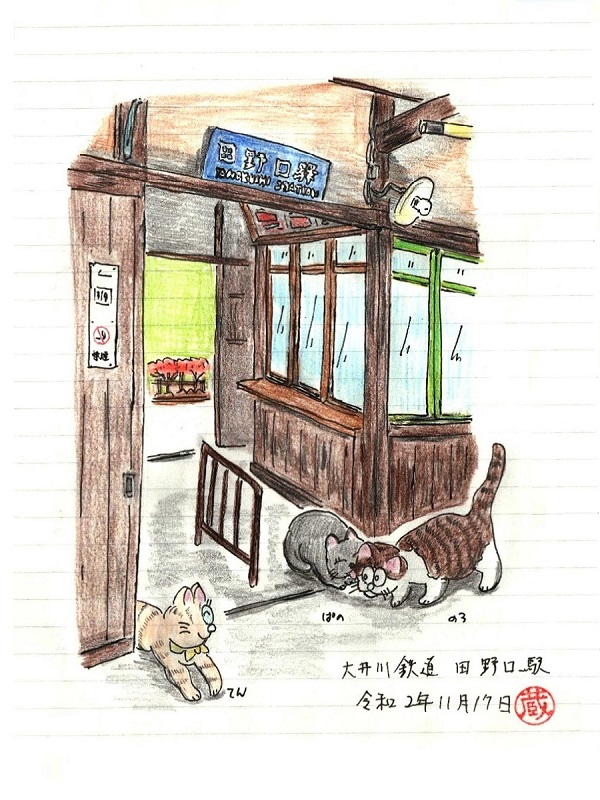 田野口驛
TANOKUCHI STATION
禁煙
ぱの
のろ
てん
大井川鉄道 田野口駅
令和2年11月17日 蔵